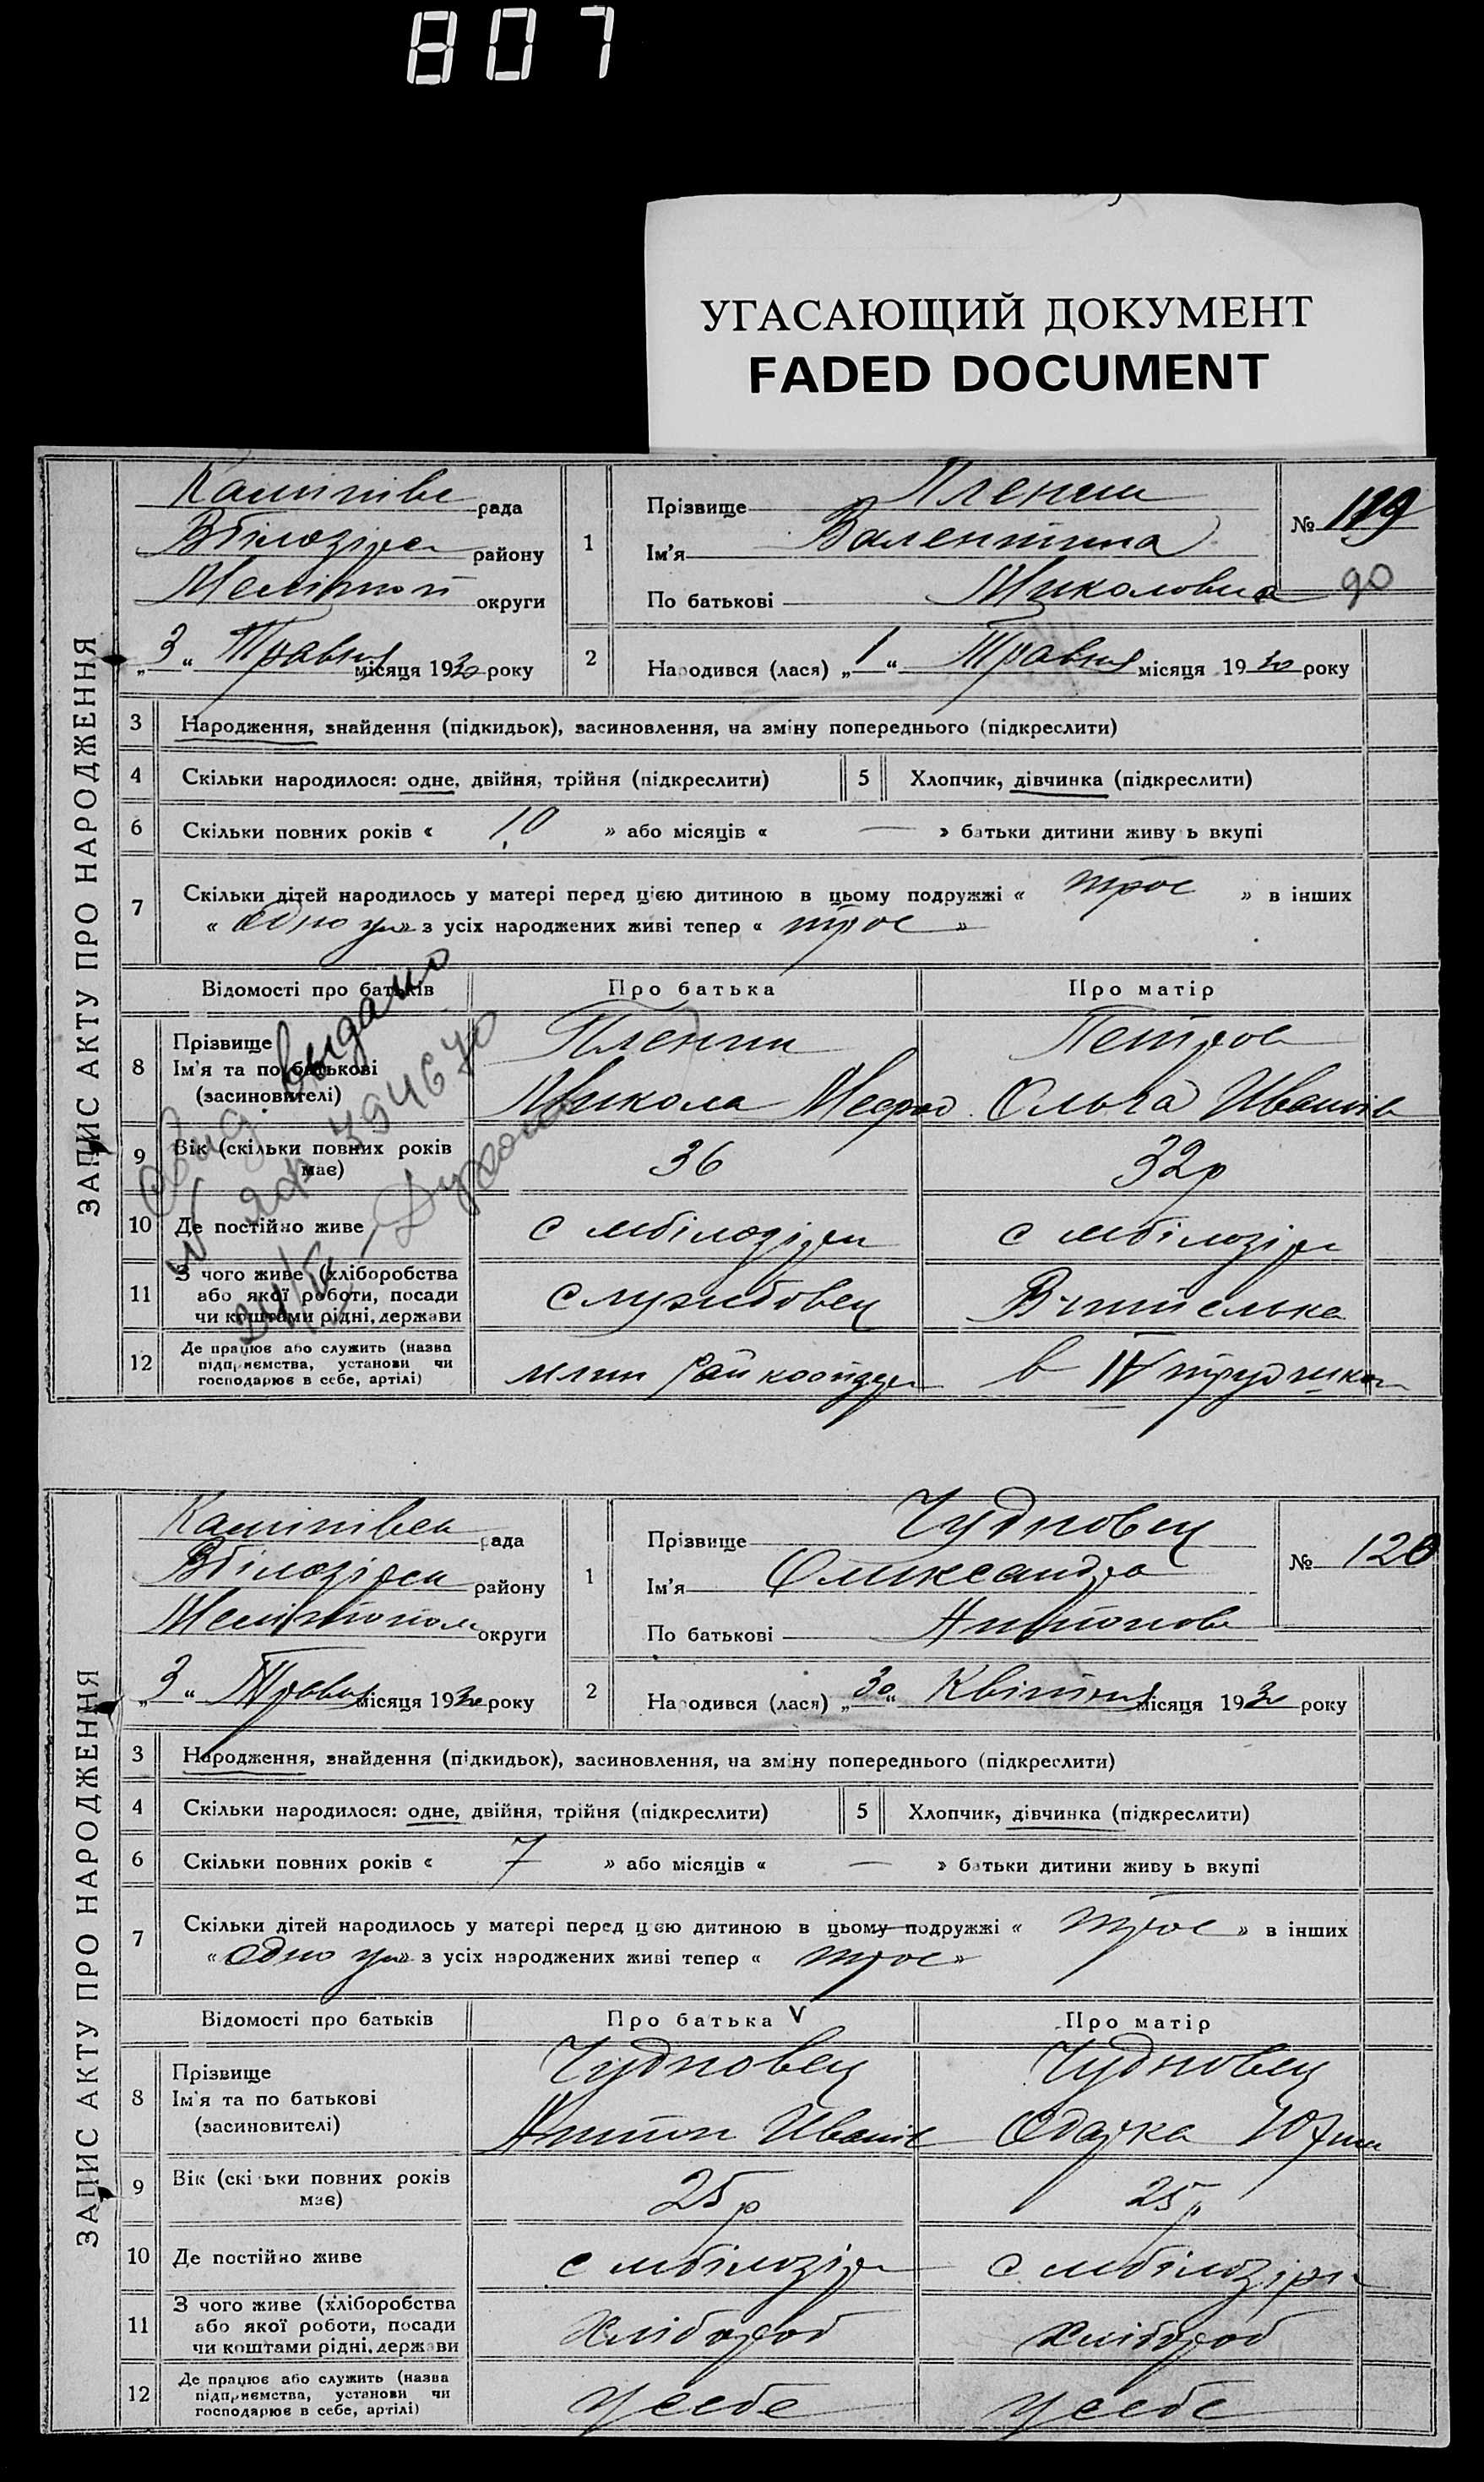 807
УГАСАЮЩИЙ ДОКУМЕНТ
FADED DOCUMENT
ЗАПИС АКТУ ПРО НАРОДЖЕННЯ
рада
району
округи
„3“ Травня місяця 1930 року
1
Прізвище
Ім'я Валентина
По батькові Миколовна
№ 119
90
2 Народився (лася) „1“ Травня місяця 1930 року
3 Народження, знайдення (підкидьок), засиновлення, на зміну попереднього (підкреслити)
4 Скільки народилося: одне, двійня, трійня (підкреслити) 5 Хлопчик, дівчинка (підкреслити)
6 Скільки повних років « 10 » або місяців « — » батьки дитини живуть вкупі
7 Скільки дітей народилось у матері перед цією дитиною в цьому подружжі « троє » в інших
« одно ум» з усіх народжених живі тепер « троє »
Відомості про батьків Про батька Про матір
8 Прізвище
Ім'я та по батькові Микола Ольга Иванів
(засиновителі)
9 Вік (скільки повних років має) 36 32р
10 Де постійно живе с мбілозірки с мбілозірки
11 З чого живе (хліборобства або якої роботи, посади чи коштами рідні, держави Службовец Вчителька
12 Де працює або служить (назва підприємства, установи чи господарює в себе, артілі) млин в IV трудшкол
Свид. выдано
ЗАПИС АКТУ ПРО НАРОДЖЕННЯ
рада
району
округи
„3“ Травня місяця 1930 року
1
Прізвище Чудновец
Ім'я Олександра
По батькові Антонова
№ 120
2 Народився (лася) „30“ Квітня місяця 1930 року
3 Народження, знайдення (підкидьок), засиновлення, на зміну попереднього (підкреслити)
4 Скільки народилося: одне, двійня, трійня (підкреслити) 5 Хлопчик, дівчинка (підкреслити)
6 Скільки повних років « 7 » або місяців « — » батьки дитини живуть вкупі
7 Скільки дітей народилось у матері перед цією дитиною в цьому подружжі « троє » в інших
« одно ум» з усіх народжених живі тепер « троє»
Відомості про батьків Про батька V Про матір
8 Прізвище Чудновец Чудновец
Ім'я та по батькові Антон Иванів Одарка
(засиновителі)
9 Вік (скільки повних років має) 25р 25р
10 Де постійно живе с мбілозірк с мбілозірк
11 З чого живе (хліборобства або якої роботи, посади чи коштами рідні, держави Хлібороб Хлібороб
12 Де працює або служить (назва підприємства, установи чи господарює в себе, артілі) у себе у себе